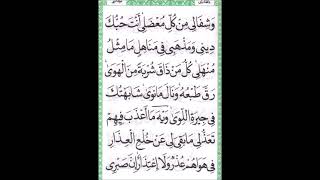 وَشِفَائِي مِنْ كُلِّ مُعْضَلِي أَنْتَ حُبُّكَ
دِينِي وَمَذْهَبِي فِي مَنَاهِلِ مَا مِثْلُ
مَنْهَلِي كُلُّ مَنْ ذَاقَ شُرْبَةً مِنَ الْهَوَى
رَقَّ طَبْعُهُ وَنَالَ مَا نَوَى شَابَهَتْكَ
فِي جِيرَةِ اللِّوَى وَيْهَ مَا أَعْذَبَ فِيهِمُ
تَعَذُّلِي مَا بَقَى لِي عَنْ خَلْعِ الْعِذَارِ
فِي هَوَاهُمْ عُذْرٌ وَلَا اعْتِذَارٌ إِنَّ صَبْرِي